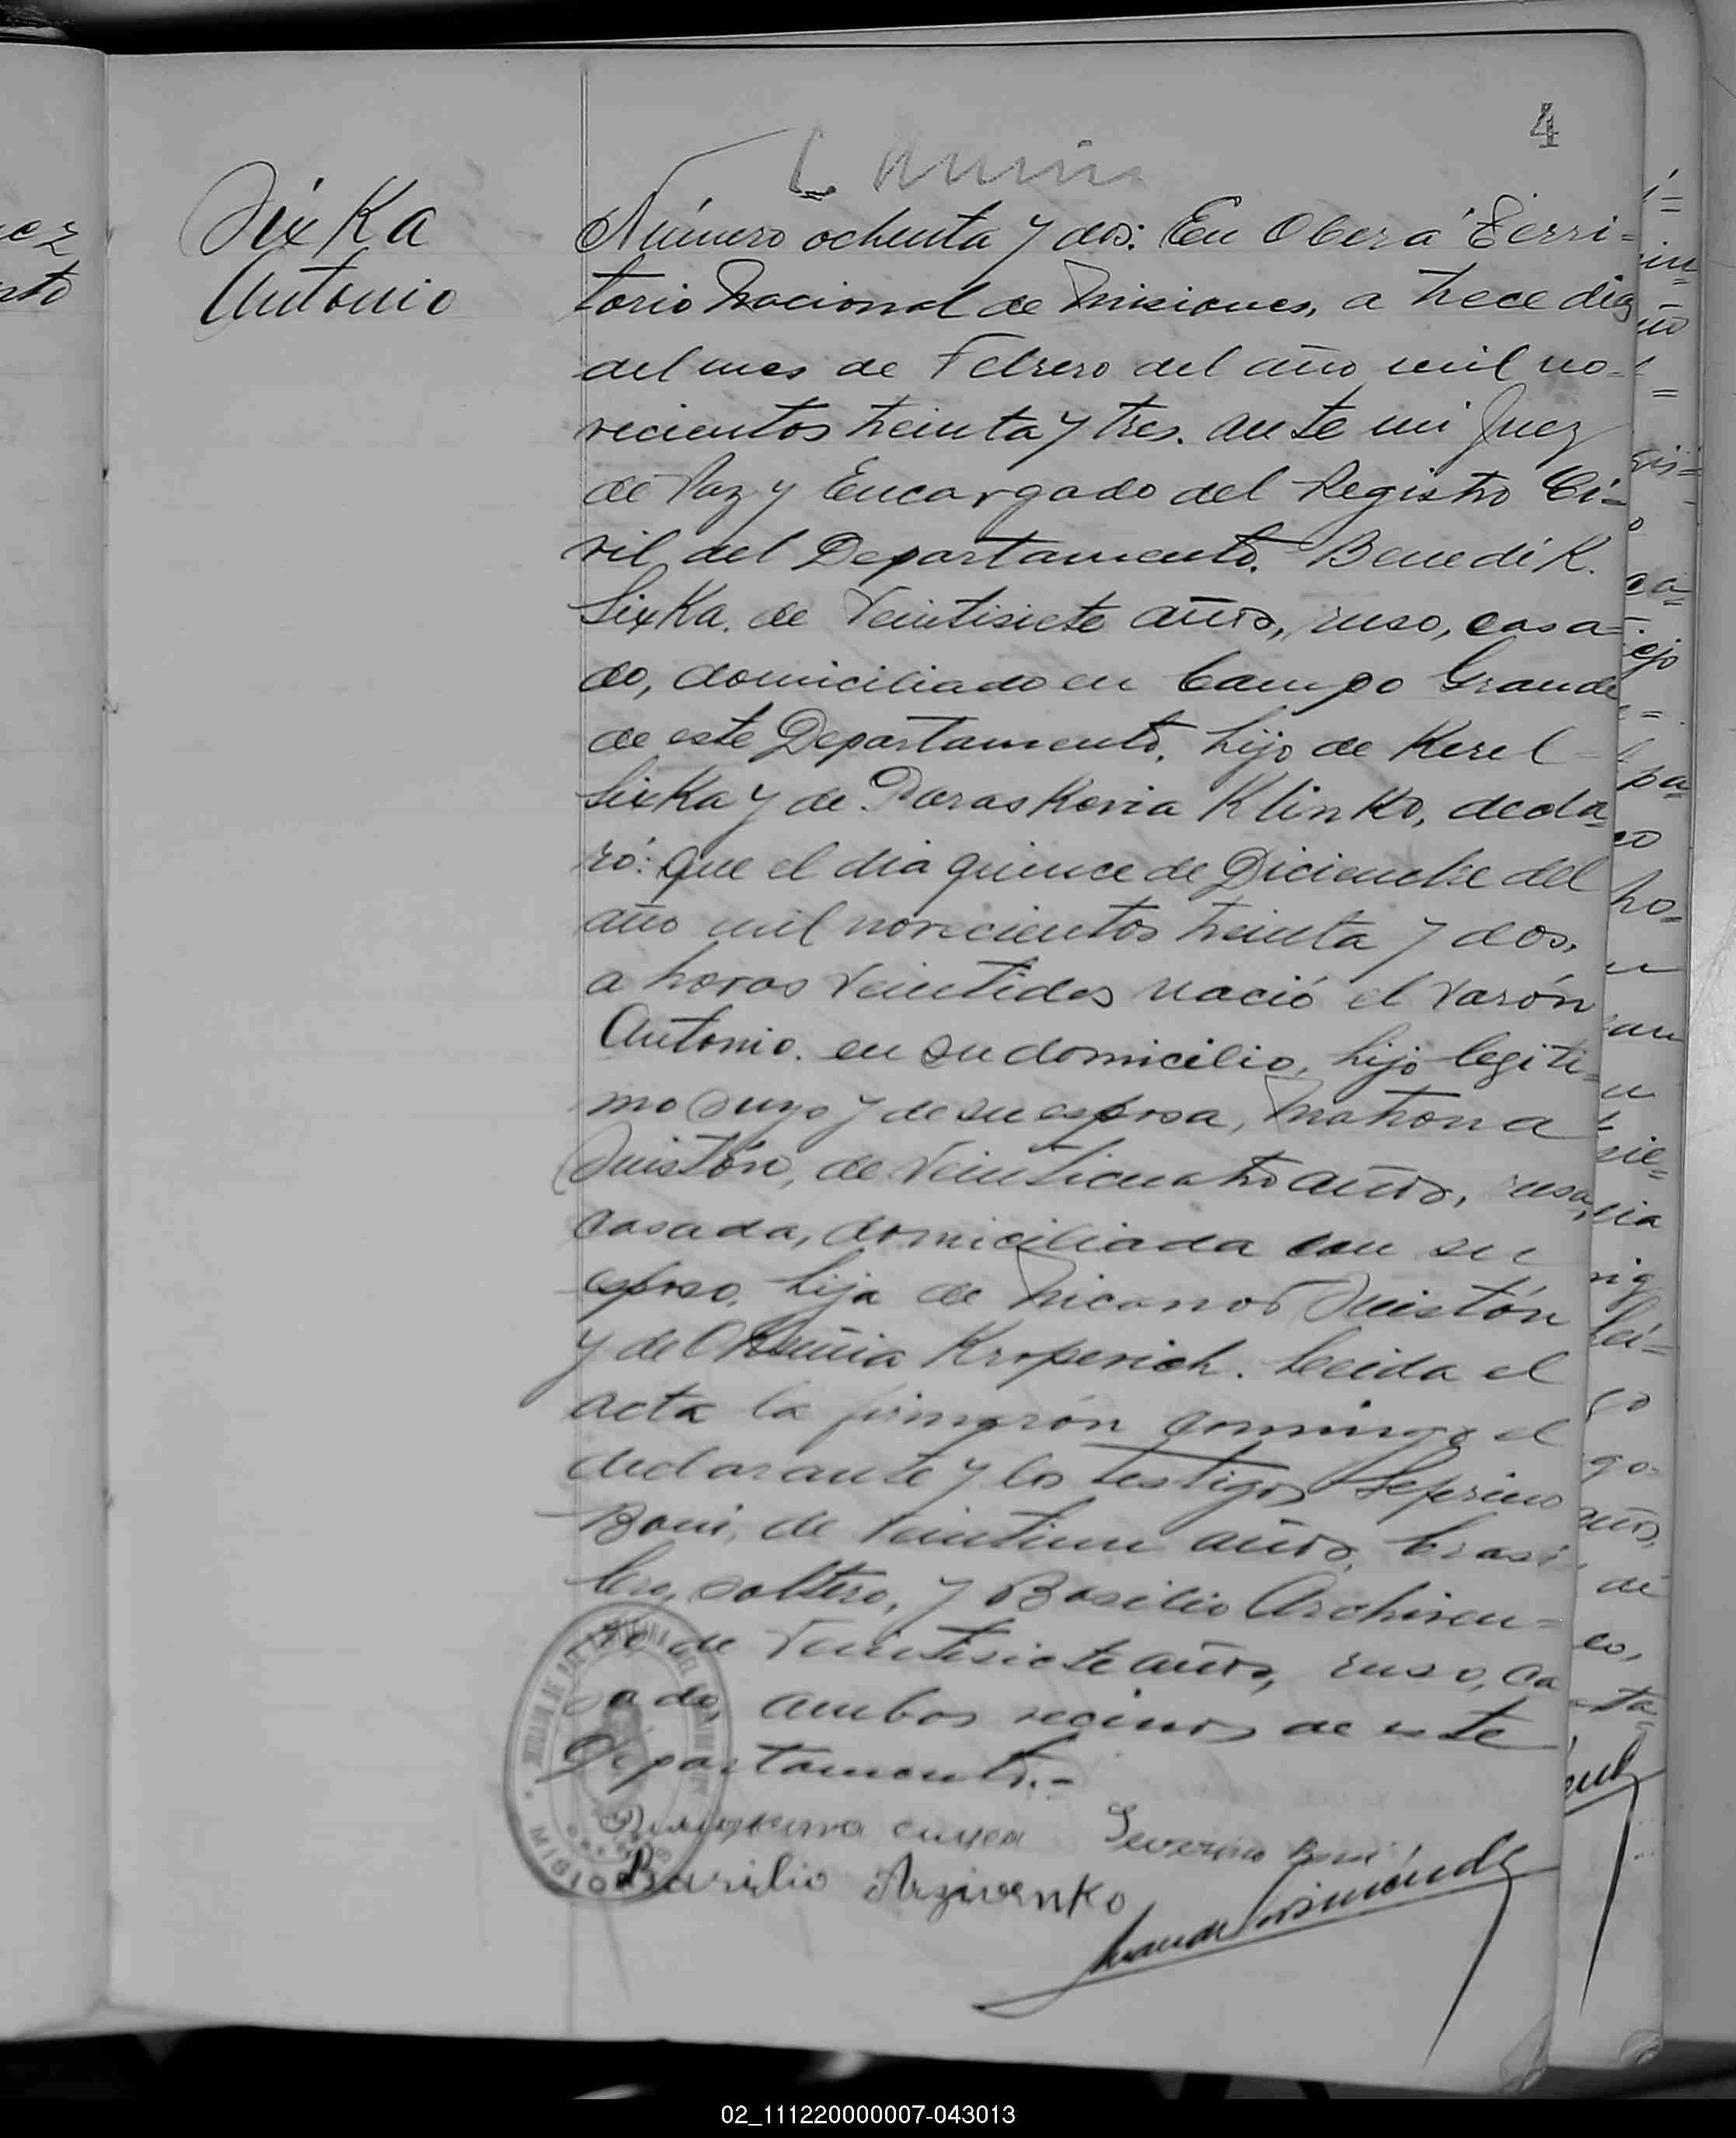 4
Sixka
Antonio
Número ochenta y dos: En Oberá Terri=
torio Nacional de Misiones, a trece dias
del mes de Febrero del año mil no-
vecientos treinta y tres. ante mi Juez
de Paz y Encargado del Registro Ci=
vil del Departamento. Benedik.
Sixka. de Veintisiete años, ruso, casa=
do, domiciliado en Campo Grande
de este Departamento, hijo de Kerel
Sixka y de Paraskovia Klinko, decla=
ró: que el dia quince de Diciembre del
año mil novecientos treinta y dos,
a horas veintidos nació el varón
Antonio. en su domicilio, hijo legiti=
mo suyo y de su esposa, Matrona
Suistón, de veinticuatro años, rusa,
casada, domiciliada con su
esposo, hija de Nicanor Suistón
y de Kroperich. Leida el
acta la firmarón conmigo el
declarante y los testigos Seperino
Boni, de veintiun años, brasi
lero, soltero, y Basilio Archiven=
ko de Veintisiete años, ruso, ca
sado, ambos vecinos de este
Departamento.-
Severino Boni
Basilio Arzivenko
MISIONES
02_111220000007-043013